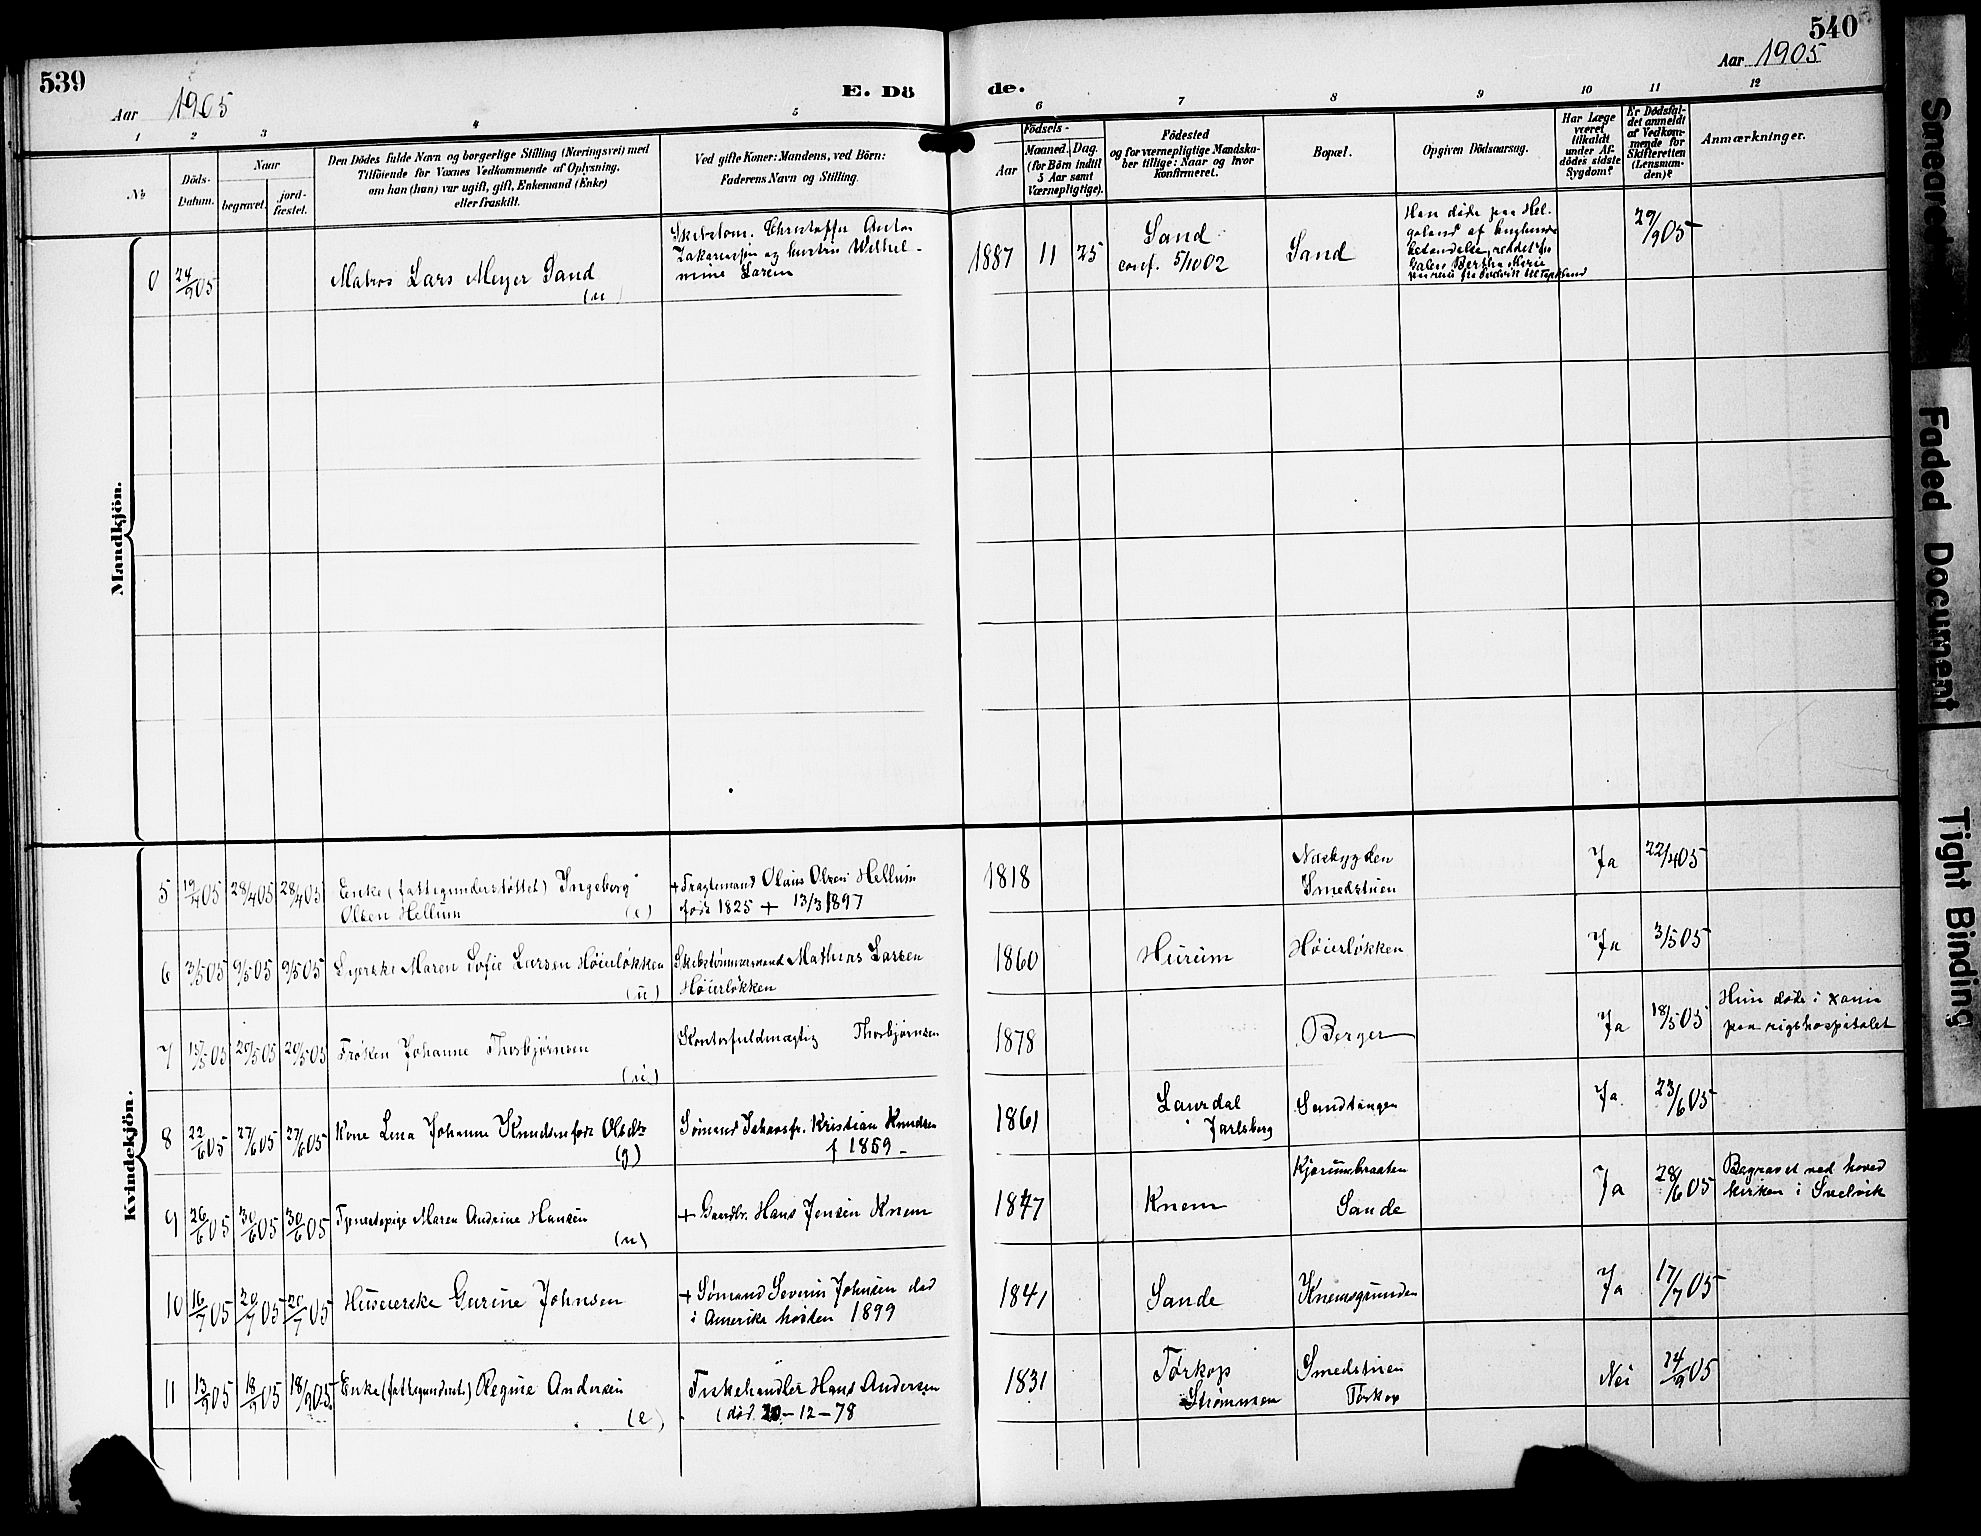 539
540
Aar 1905
E. Dö
de.
Aar 1905
1 2 3 4 5 6 7 8 9 10 11 12
No
Döds-
Datum.
Naar
begravet.
jord-
fæstet.
Den Dödes fulde Navn og borgerlige Stilling (Næringsvei) med
Tilföiende for Voxnes Vedkommende af Oplysning,
om han (hun) var ugift, gift, Enkemand (Enke)
eller fraskilt.
Ved gifte Koner: Mandens, ved Börn:
Faderens Navn og Stilling.
Födsels-
Aar
Maaned.
Dag.
(for Börn indtil
5 Aar samt
Værnepligtige).
Födested
og for værnepligtige Mandska-
ber tillige: Naar og hvor
konfirmeret.
Bopæl.
Opgiven Dödsaarsag.
Har Læge
været
tilkaldt
under Af-
dödes sidste
Sygdom?
Er Dödsfal-
det anmeldt
af Vedkom-
mende for
Skifteretten
(Lensman-
den)?
Anmærkninger.
Mandkjön.
24/9 05
Matros Lars Meyer Sand
(u)
Christoffer Anton
Zakariassen og hustru Wilhel-
mine Larsen
1887 11 25
Sand
conf. 5/10 02
Sand
Han døde paa Hel-
goland af
betændelse,
Bertha Marie
29/9 05
Kvindekjön.
5 19/4 05 28/4 05 28/4 05
Enke (fattigunderstøttet) Ingeborg
Olsen Hellum (e)
+ Fragtemand Olaus Olsen Hellum
født 1825 + 13/3 1897
1818
Nordbygden
Smedstuen
Ja
22/4 05
6 3/5 05 9/5 05 9/5 05
Syerske Maren Sofie Larsen Høierløkken
(u)
Skibstømmermand Mathias Larsen
Høierløkken
1860
Hurum
Høierløkken
Ja
3/5 05
7 15/5 05 20/5 05 20/5 05
Frøken Johanne Thorbjørnsen
(u)
Kontorfuldmægtig Thorbjørnsen
1878
Berger
Ja
18/5 05
Hun døde i Xania
paa rigshospitalet
8 22/6 05 27/6 05 27/6 05
Kone Lina Johanne Knudsen født Olsdtr
(g)
Sømand Johansfr. Kristian Knudsen
f 1859 -
1861
Laurdal
Jarlsberg
Sandtangen
Ja
23/6 05
9 26/6 05 30/6 05 30/6 05
Tjenestepige Maren Andrine Hansen
(u)
+ Gaardbr. Hans Jensen Knem
1847
Knem
Kjørumbraaten
Sande
Ja
28/6 05
Begravet ved hoved
kirken i Svelvik
10 16/7 05 20/7 05 20/7 05
Huseierske Gurine Johnsen
+ Sømand Severin Johnsen død
i Amerika høsten 1899
1841
Sande
Knemsgrunden
Ja
17/7 05
11 13/9 05 18/9 05 18/9 05
Enke (fattigunderst.) Regine Andersen
(e)
Fiskehandler Hans Andersen
(død 20-12-78
1831
Tørkop
Strømmen
Smedstuen
Tørkop
Nei
14/9 05
Smeared
Faded Document
Tight Binding